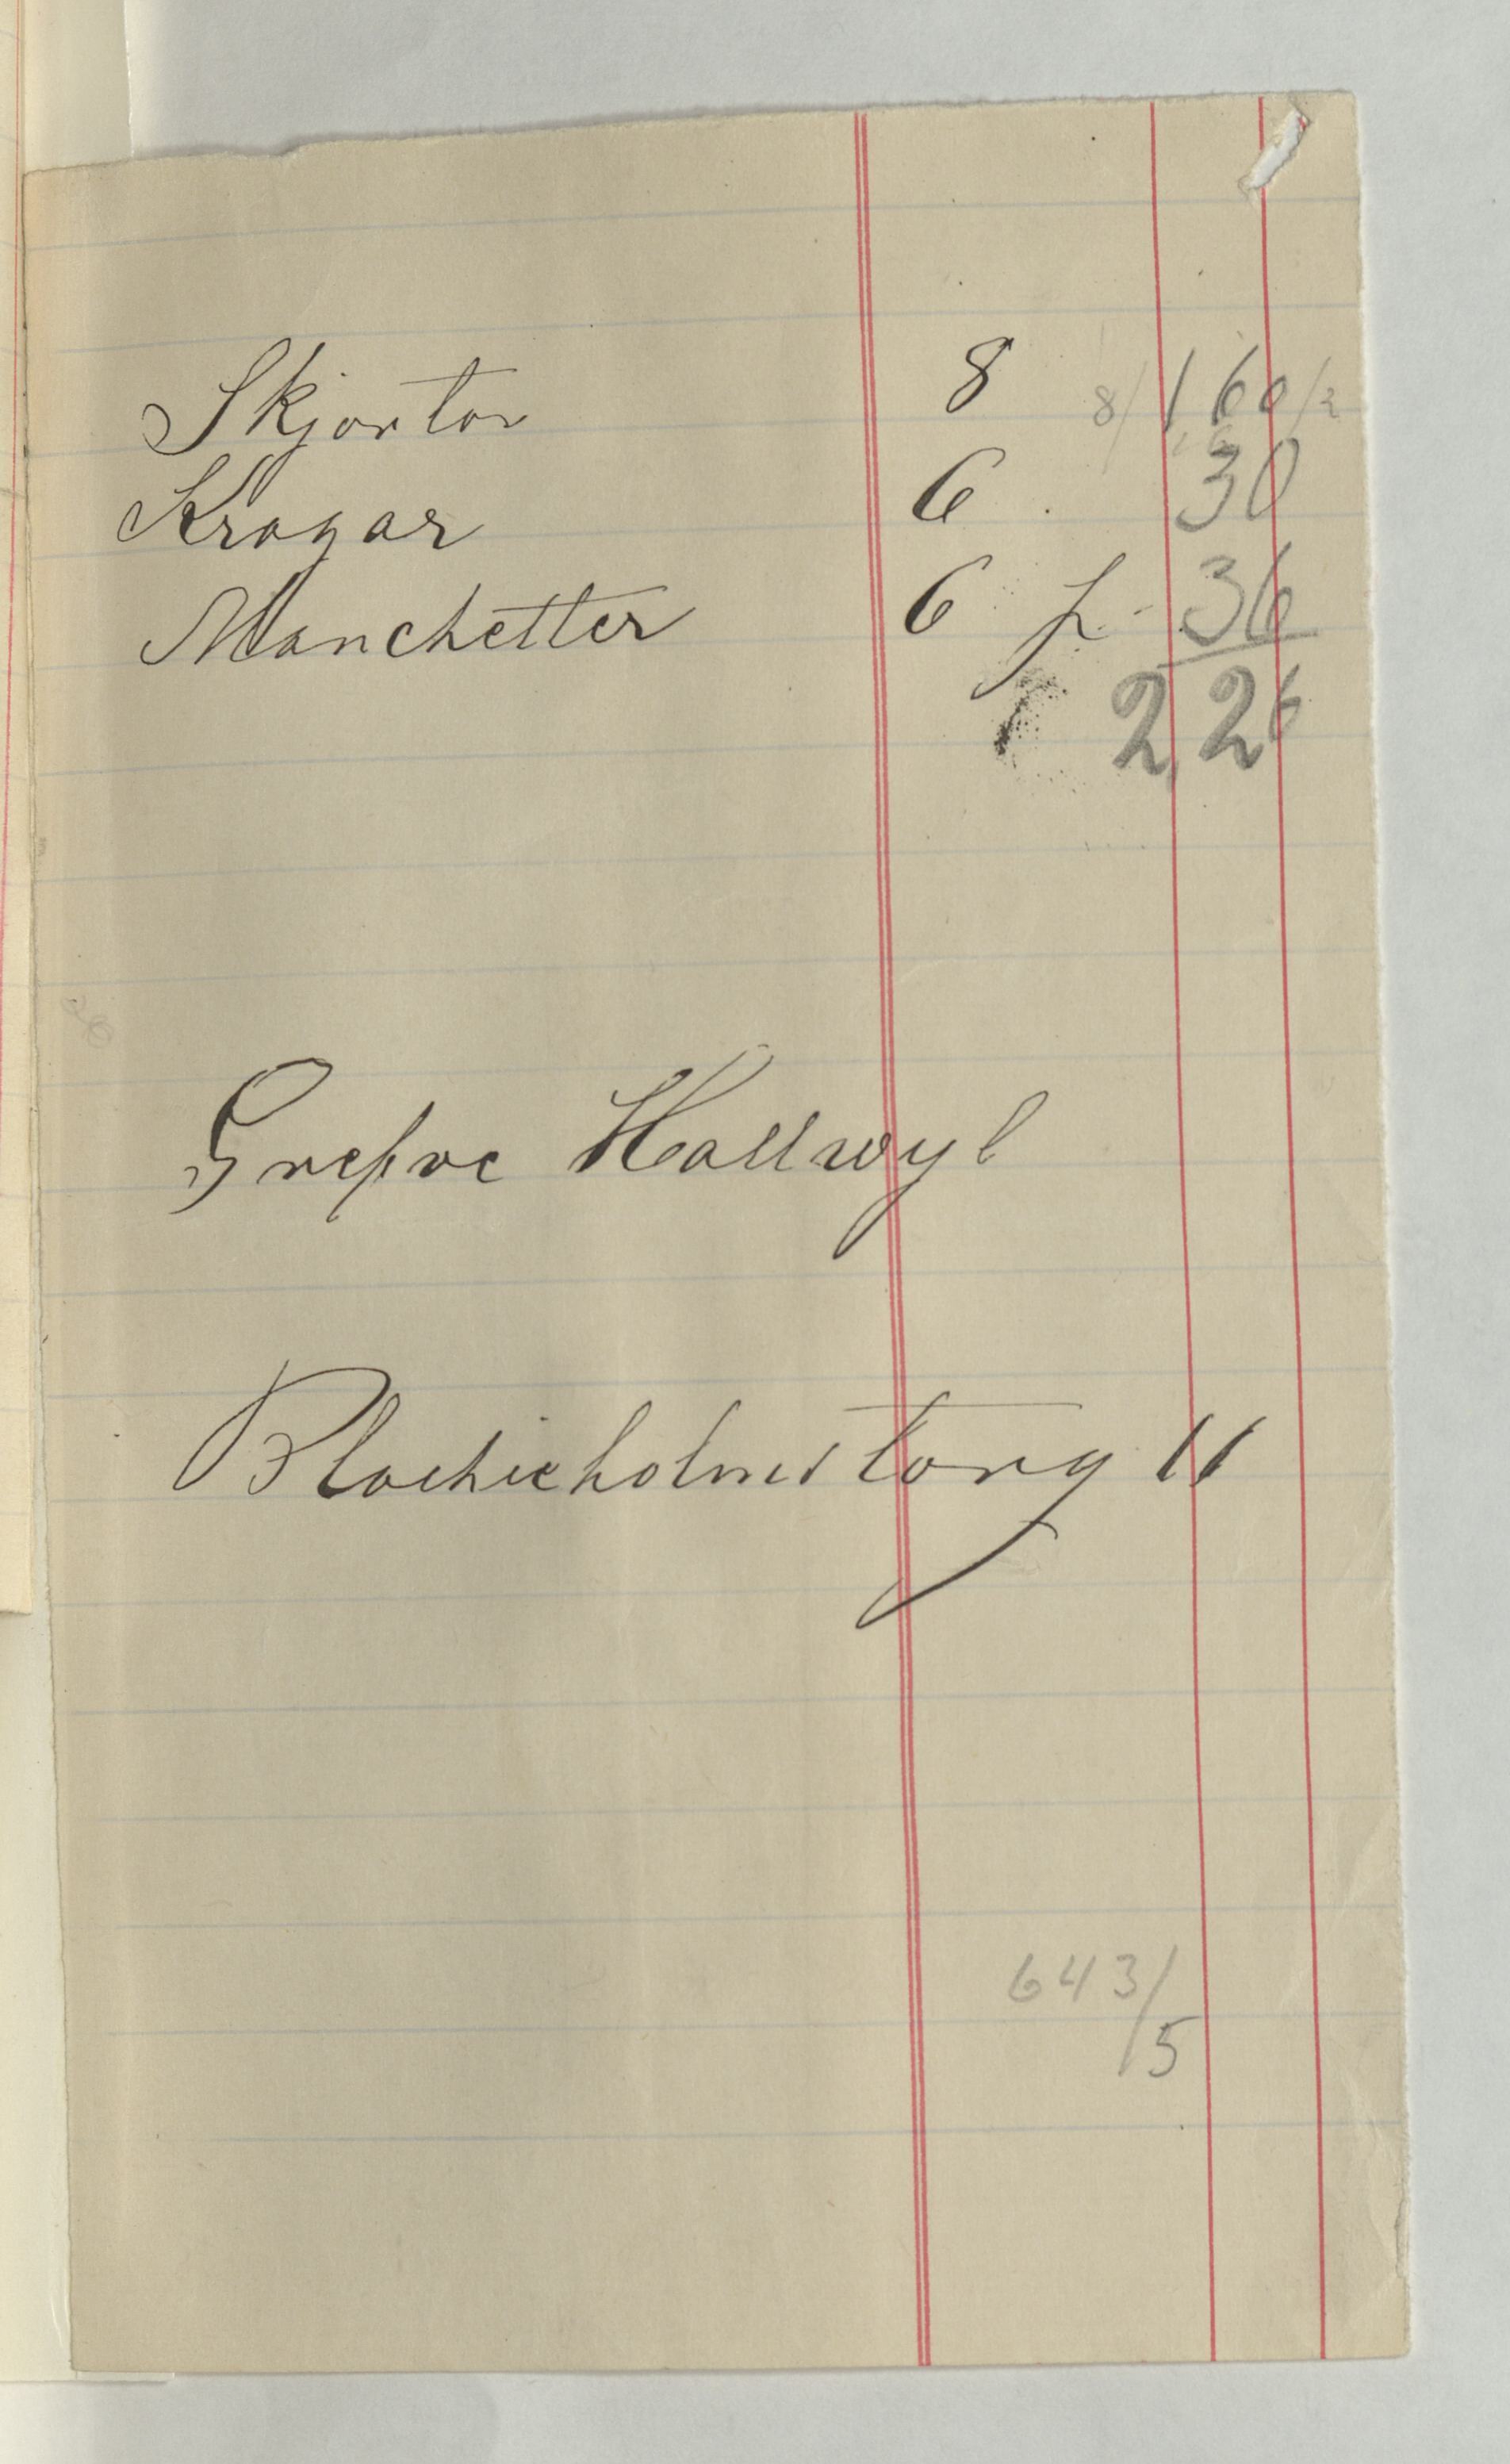 Skjortor 8 8/ 1 60 /2
Kragar 6 . 30
Manchetter 6 p. - 36
2,26
Grefve Hallwyl
Blasieholmstorg 11
643/5